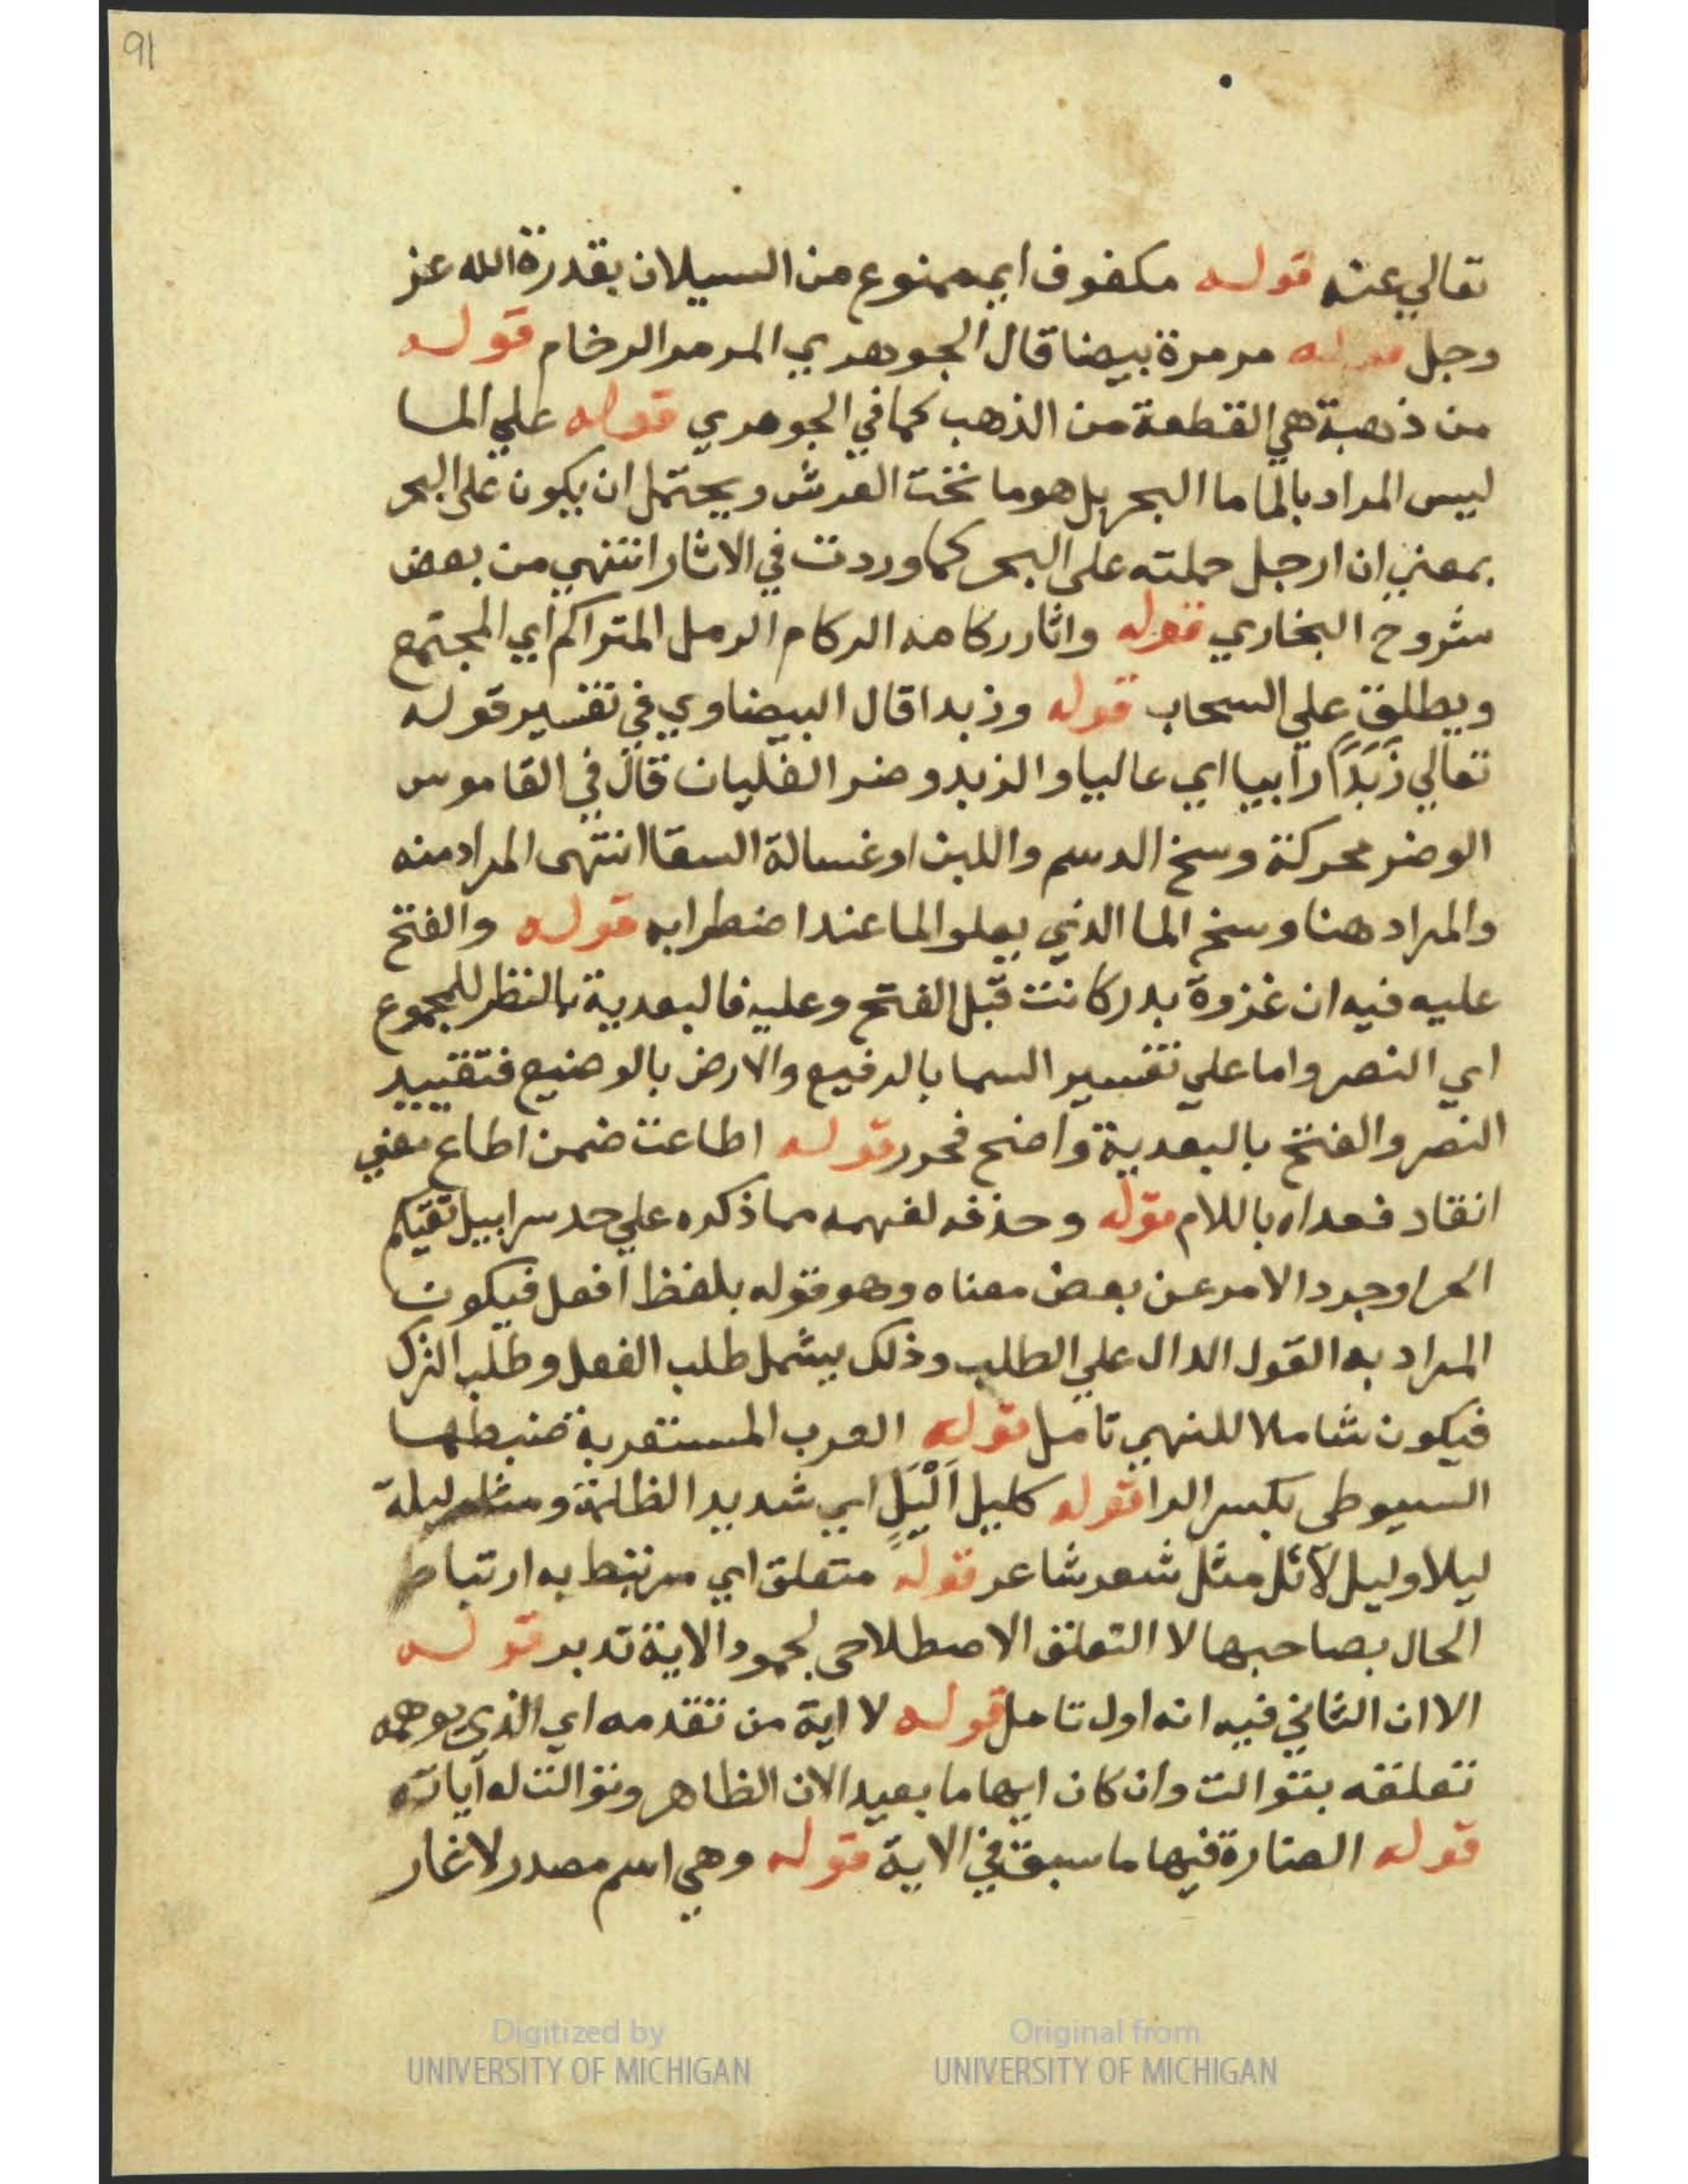 91
تعالي عنه قوله مكفوف اي ممنوع من السيلان بقدرة الله عز
وجل قوله مرمرة بيضا قال الجوهري المرمر الرخام قوله
من ذهبة هي القطعة من الذهب كما في الجوهري قوله علي الما
ليس المراد بالما ما البحر بل هو ما تحت العرش ويحتمل ان يكون على البحر
بمعني ان ارجل حملته على البحر كما وردت في الاثار انتهي من بعض
شروح البخاري قوله واثار ركامه الركام الرمل المتراكم اي المجتمع
ويطلق علي السحاب قوله وزبدا قال البيضاوي في تفسير قوله
تعالي زَبَدًا رابيا اي عاليا والزبد وضر الغليان قال في القاموس
الوضر محركة وسخ الدسم واللبن او غسالة السقا انتهى المراد منه
والمراد هنا وسخ الما الذي يعلو الما عند اضطرابه قوله والفتح
عليه فيه ان غزوة بدر كانت قبل الفتح وعليه فالبعدية بالنظر للمجموع
اي النصر واما علي تفسير السما بالرفيع والارض بالوضيع فتقييد
النصر والفتح بالبعدية واضح فحرر قوله اطاعت ضمن اطاع معني
انقاد فعداه باللام قوله وحذفه لفهمه مما ذكره علي حد سرابيل تقيكم
الحر او جرد الامر عن بعض معناه وهو قوله بلفظ افعل فيكون
المراد به القول الدال علي الطلب وذلك يشمل طلب الفعل وطلب الترك
فيكون شاملا للنهي تامل قوله العرب المستعربة ضبطها
السيوطي بكسر الرا قوله كليل اَلْيَلٍ اي شديد الظلمة ومثله ليلة
ليلا وليل لآئل مثل شعر شاعر قوله متعلق اي مرتبط به ارتباط
الحال بصاحبها لا التعلق الاصطلاحي لجمود الاية تدبر قوله
الا ان الثاني فيه انه اول تامل قوله لا اية من تقدمه اي الذي يوهمه
تعلقه بتوالت وان كان ايهاما بعيد الان الظاهر وتوالت له آياته
قوله الصتارة فيها ما سبق في الاية قوله وهي اسم مصدر لاغار
Digitized by
UNIVERSITY OF MICHIGAN
Original from
UNIVERSITY OF MICHIGAN